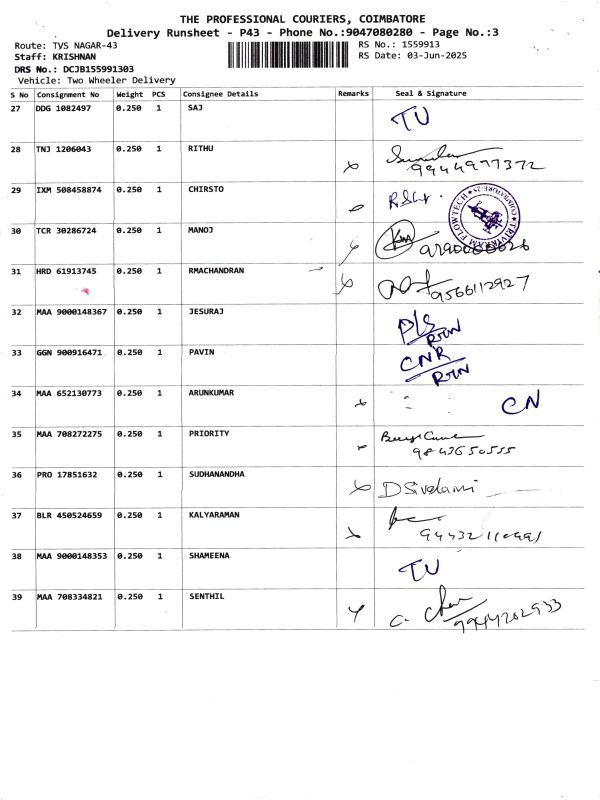 THE PROFESSIONAL COURIERS, COIMBATORE
Delivery Runsheet - P43 - Phone No.:9047080280 - Page No.:3
Route: TVS NAGAR-43 RS No.: 1559913
Staff: KRISHNAN RS Date: 03-Jun-2025
DRS No.: DCJB155991303
Vehicle: Two Wheeler Delivery
S No Consignment No Weight PCS Consignee Details Remarks Seal & Signature
27 DDG 1082497 0.250 1 SAJ TU
28 TNJ 1206043 0.250 1 RITHU
9944977372
29 IXM 508458874 0.250 1 CHIRSTO
30 TCR 30286724 0.250 1 MANOJ
31 HRD 61913745 0.250 1 RMACHANDRAN
9566112927
32 MAA 9000148367 0.250 1 JESURAJ D/S
RTN
33 GGN 900916471 0.250 1 PAVIN CNR
RTN
34 MAA 652130773 0.250 1 ARUNKUMAR CN
35 MAA 708272275 0.250 1 PRIORITY
9843650555
36 PRO 17851632 0.250 1 SUDHANANDHA
37 BLR 450524659 0.250 1 KALYARAMAN
38 MAA 9000148353 0.250 1 SHAMEENA TU
39 MAA 708334821 0.250 1 SENTHIL